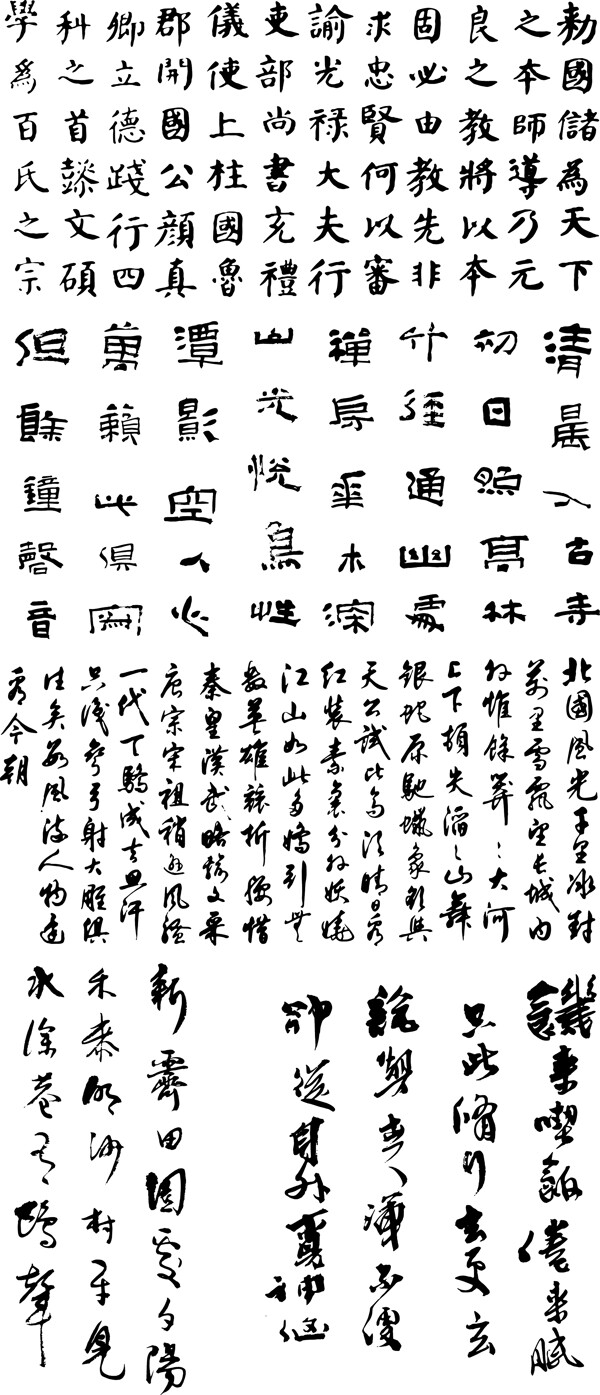 勅國儲為天下
之本師導乃元
良之教將以本
固必由教先非
求忠賢何以審
諭光祿大夫行
吏部尚書充禮
儀使上柱國魯
郡開國公顏真
卿立德踐行四
科之首懿文碩
學為百氏之宗
清晨入古寺
初日照高林
竹徑通幽處
禪房花木深
山光悅鳥性
潭影空人心
萬籟此俱寂
但餘鐘聲音
北國風光千里冰封
萬里雪飄望長城內
外惟餘莽〻大河
上下頓失滔〻山舞
銀蛇原馳蠟象欲與
天公試比高須晴日看
紅裝素裹分外妖嬈
江山如此多嬌引無
數英雄競折腰惜
秦皇漢武略輸文采
唐宗宋祖稍遜風騷
一代天驕成吉思汗
只識彎弓射大雕俱
往矣數風流人物還
看今朝
饑來喫飯倦來眠
只此修行玄更玄
說與世人渾不信
卻從身外覓神仙
新霽田園處夕陽
禾黍明沙村平見
水深巷有鷗聲